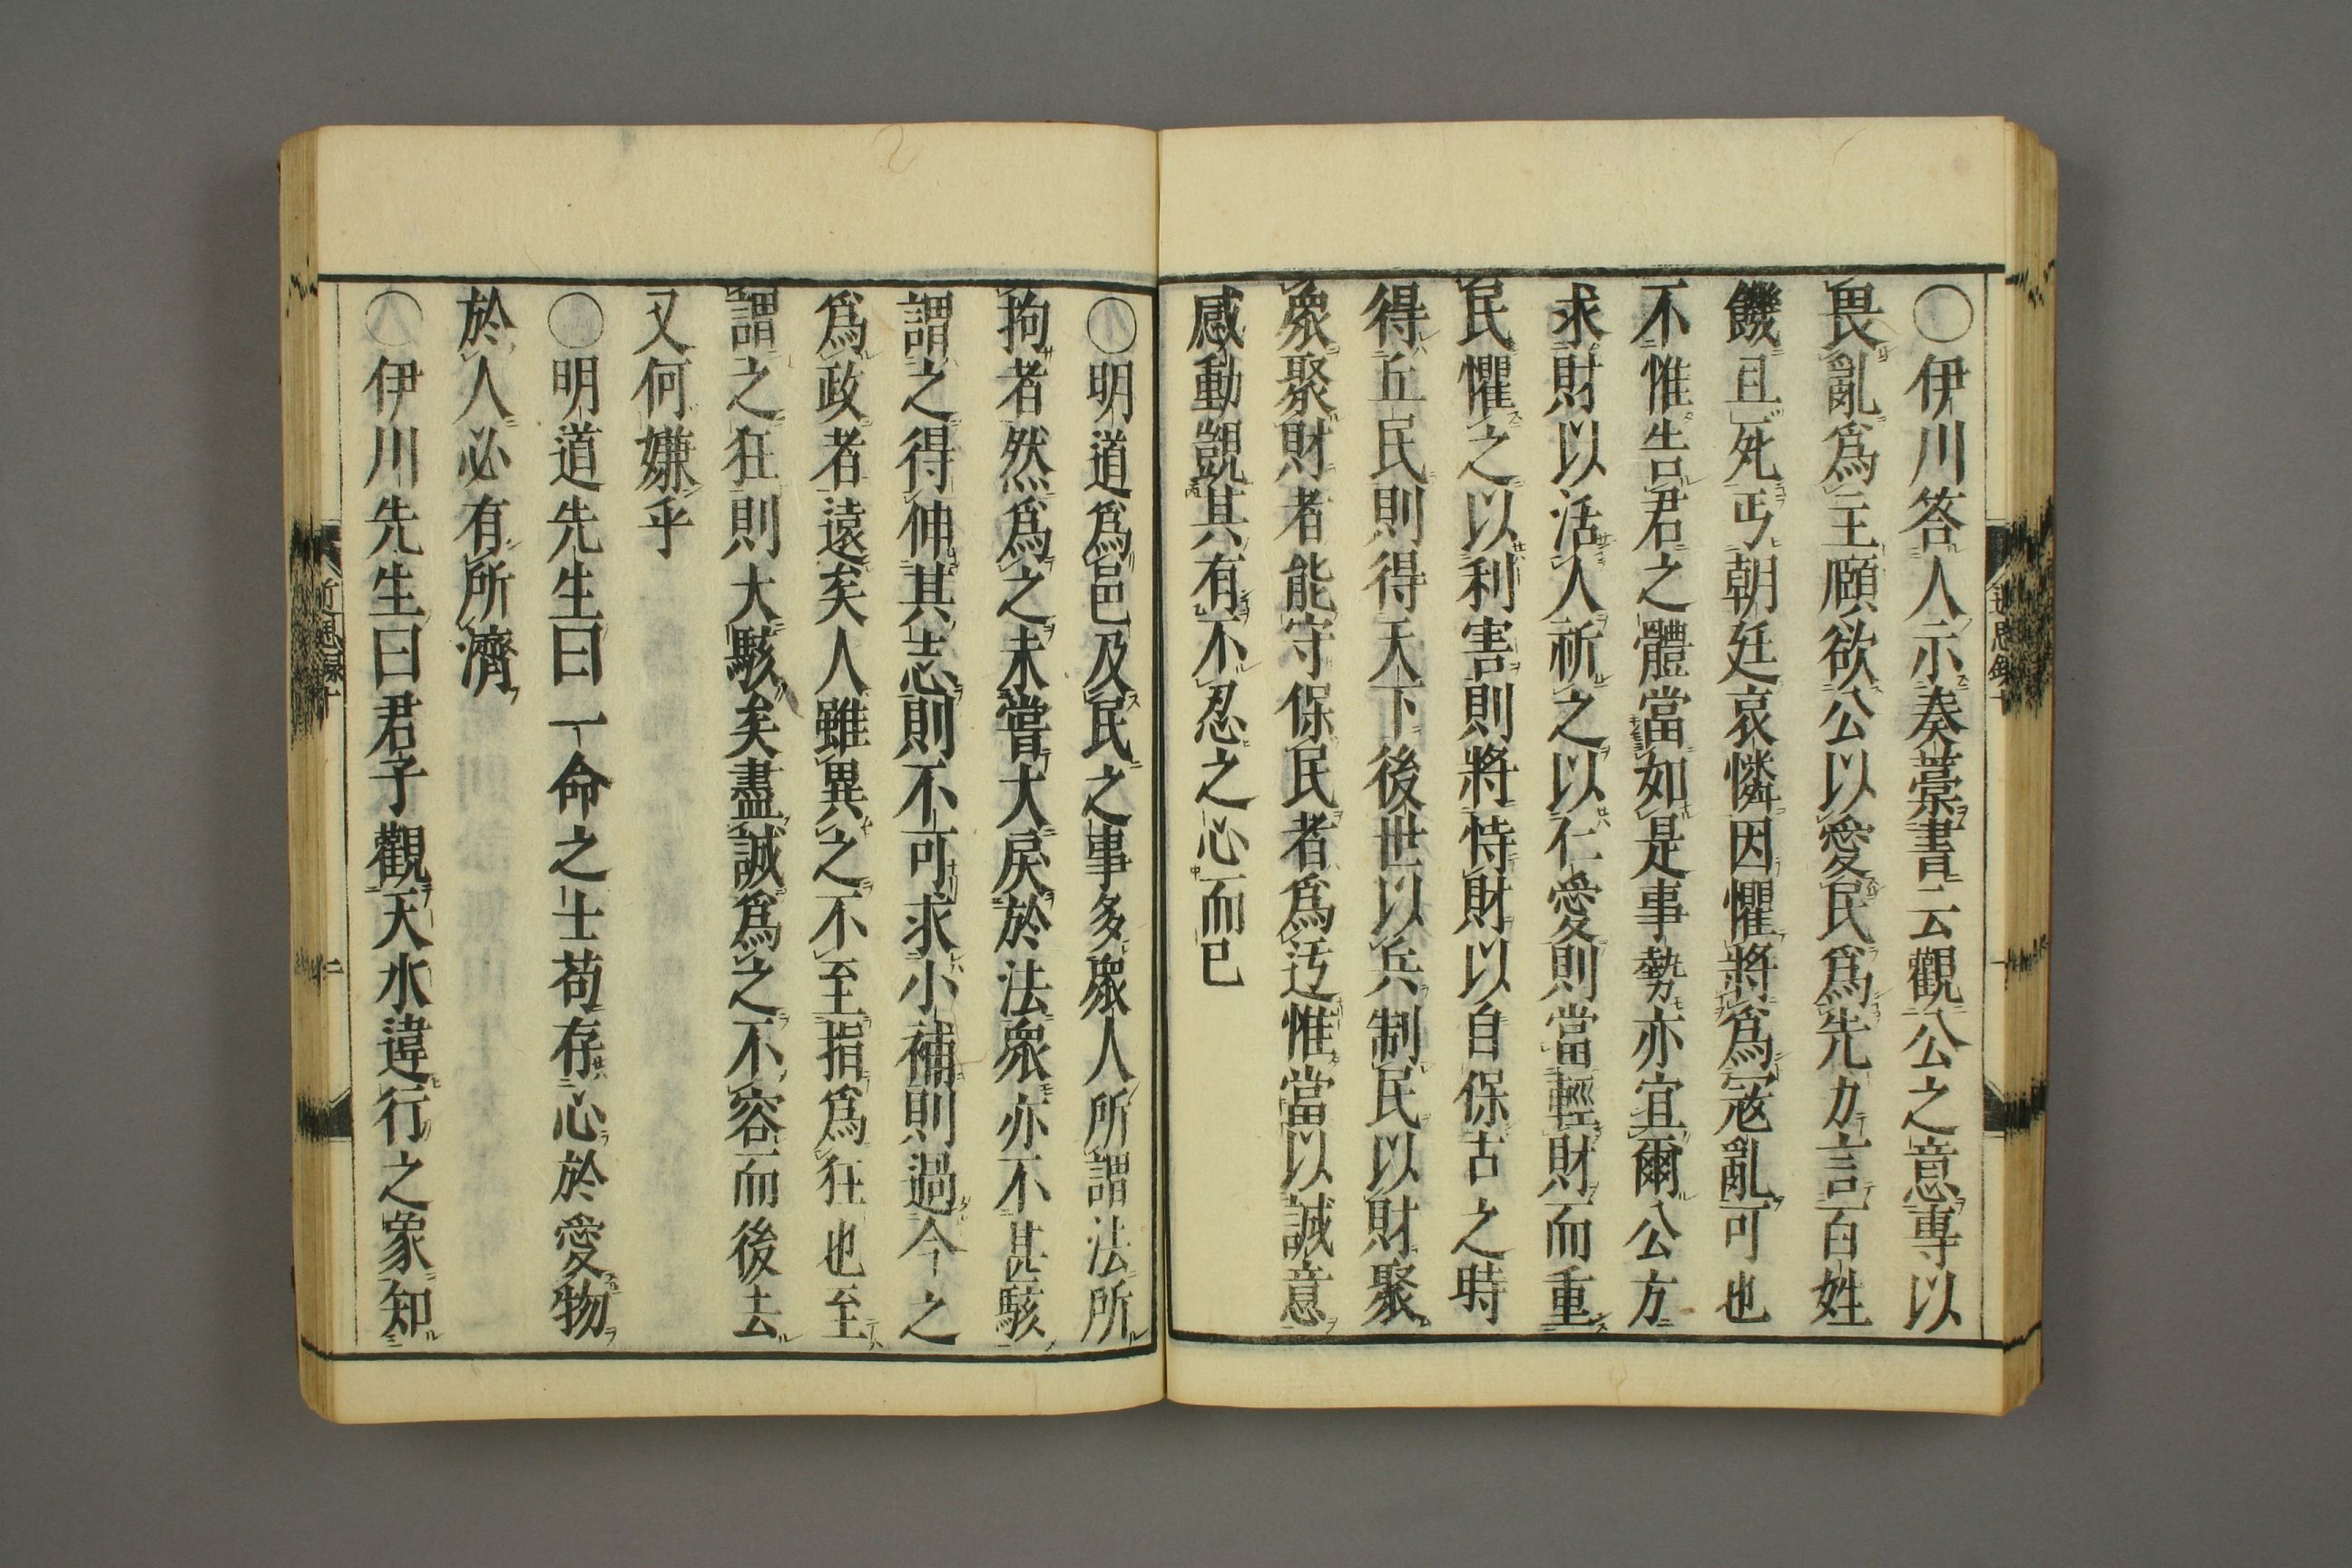 ○伊川答人示奏藁書云觀公之意專以
畏亂爲主頤欲公以愛民爲先力言百姓
饑且死丐朝廷哀憐因懼將爲寇亂可也
不惟告君之體當如是事勢亦宜爾公方
求財以活人祈之以仁愛則當輕財而重
民懼之以利害則將恃財以自保古之時
得丘民則得天下後世以兵制民以財聚
衆聚財者能守保民者爲迃惟當以誠意
感動覬其有不忍之心而已
○明道爲邑及民之事多衆人所謂法所
拘者然爲之未嘗大戾於法衆亦不甚駭
謂之得伸其志則不可求小補則過今之
爲政者遠矣人雖異之不至指爲狂也至
謂之狂則大駭矣盡誠爲之不容而後去
又何嫌乎
○明道先生曰一命之士苟存心於愛物
於人必有所濟
○伊川先生曰君子觀天水違行之象知
近思録十
二